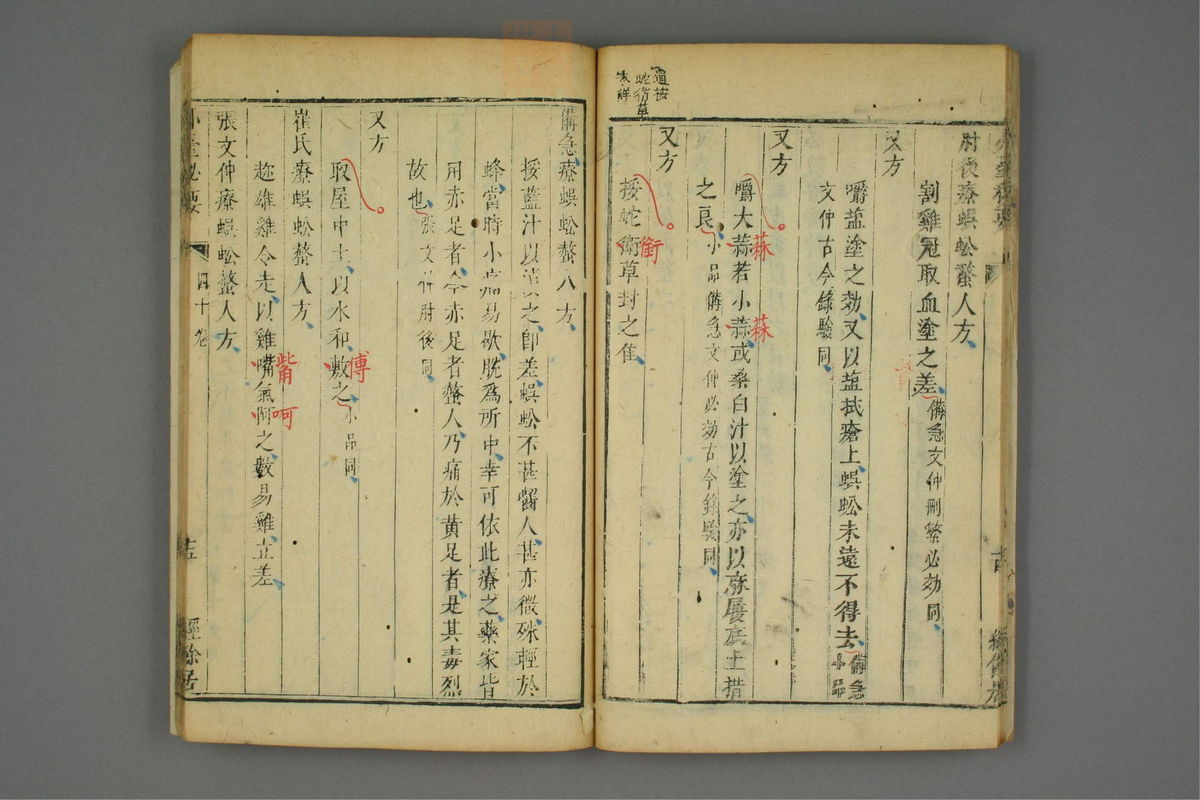 肘後療蜈蚣螫人方
割雞冠取血塗之差備急文仲刪繁必効同
又方
嚼鹽塗之効又以鹽拭瘡上蜈蚣未遠不得去備急小品
文仲古今錄驗同
又方
嚼大蒜若小蒜或桑白汁以塗之亦以麻屨底土揩
之良小品備急文仲必効古今錄驗同
又方
挼蛇銜草封之佳
蒜
蒜
銜
遍按
蛇衍草
未詳
備急療蜈蚣螫人方
挼藍汁以漬之即差蜈蚣不甚齧人甚亦微殊輕於
蜂當時小痛易歇脫為所中幸可依此療之藥家皆
用赤足者今赤足者螫人乃痛於黃足者是其毒烈
故也張文仲肘後同
又方
取屋中土以水和敷之小品同
崔氏療蜈蚣螫人方
趂雄雞令走以雞嘴氣呵之數易雞立差
張文仲療蜈蚣螫人方
傅
觜
呵
外臺秘要
四十卷
經餘居